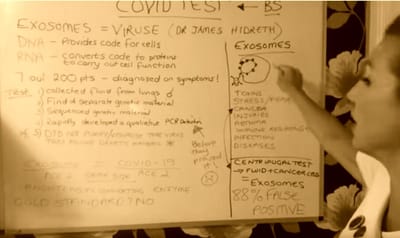 COVID TEST ← BS
EXOSOMES = VIRUSE (DR JAMES HIDRETH)
DNA - Provides code for cells
RNA - converts code to proteins
to carry out cell function
7 out 200 pts - diagnosed on symptoms!
Test. 1) collected fluid from lungs
2) Find a separate genetic material
3) Sequenced genetic material
4) Rapidly developed a qualitative PCR Detection
5) DID NOT PURIFY / the virus
Before they proved it!
EXOSOMES = COVID-19
ACE 2 SAME SIZE ACE 2
CONVERTING ENZYME
GOLD STANDARD? NO
EXOSOMES
TOXINS
STRESS/FEAR
CANCER
INJURIES
ASTHMA
IMMUNE RESPONSE
INFECTION
DISEASES
CENTRIFUGAL TEST
→ FLUID + CANCER CELLS
= EXOSOMES
88% FALSE
POSITIVE